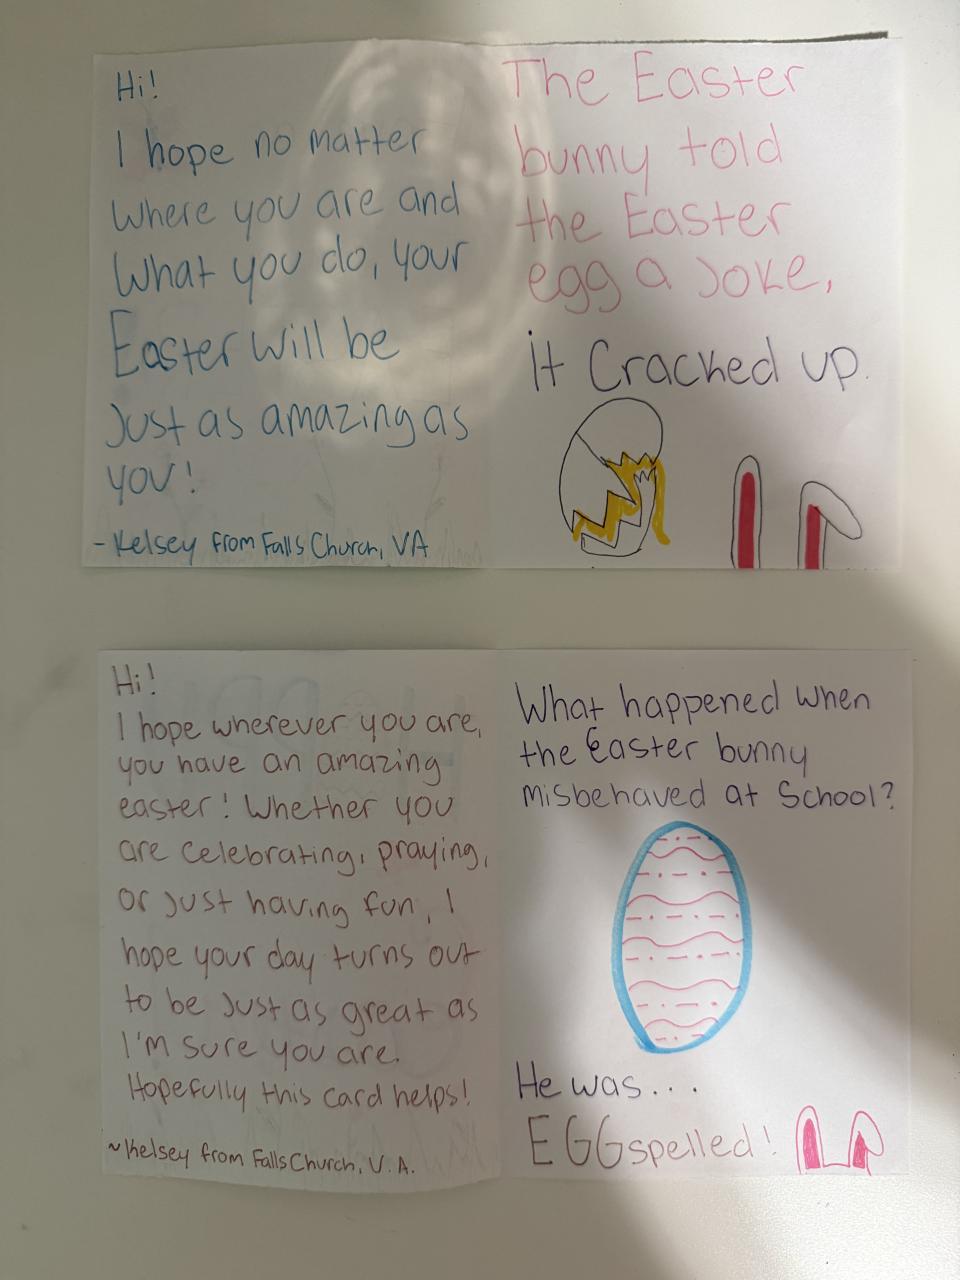 Hi!
I hope no matter
where you are and
What you do, your
Easter will be
Just as amazing as
you!
- Kelsey from Falls Church, VA
The Easter
bunny told
the Easter
egg a Joke,
it Cracked up.
Hi!
I hope wherever you are,
you have an amazing
easter! Whether you
are celebrating, praying,
or just having fun, I
hope your day turns out
to be Just as great as
I'm sure you are.
Hopefully this card helps!
~Kelsey from Falls Church, V.A.
What happened when
the Easter bunny
misbehaved at School?
He was...
EGGspelled!